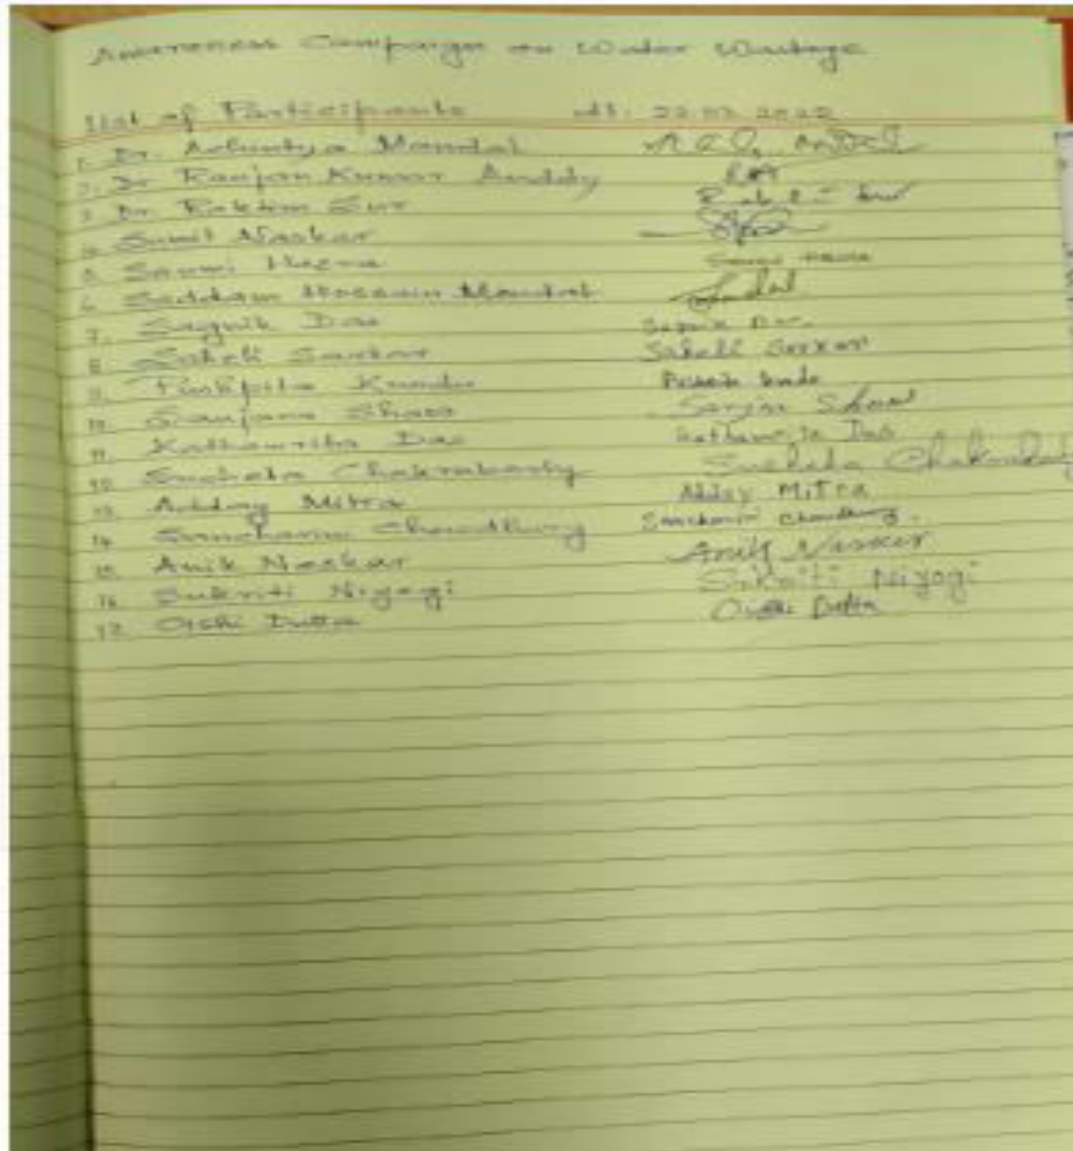 Awareness Campaign on Water Wastage
List of Participants dt. 22.03.2022
1. Dr. Achintya Mondal
2. Dr Ranjan Kumar
3. Dr. Raktim Sur
4. Sumit Naskar
5. Soumi Hazra
6. Saddam Hossain Mondal
7. Sagnik Das Sagnik Das
8. Saheli Sarkar Saheli Sarkar
9. Kundu
10. Sanjana Shaw Sanjana Shaw
11. Das Das
12. Sucheta Chakraborty Sucheta Chakraborty
13. Mitra Mitra
14. Sanchari Chowdhury Sanchari Chowdhury.
15. Anik Naskar Anik Naskar
16. Sukriti Niyogi Sukriti Niyogi
17. Oishi Dutta Oishi Dutta